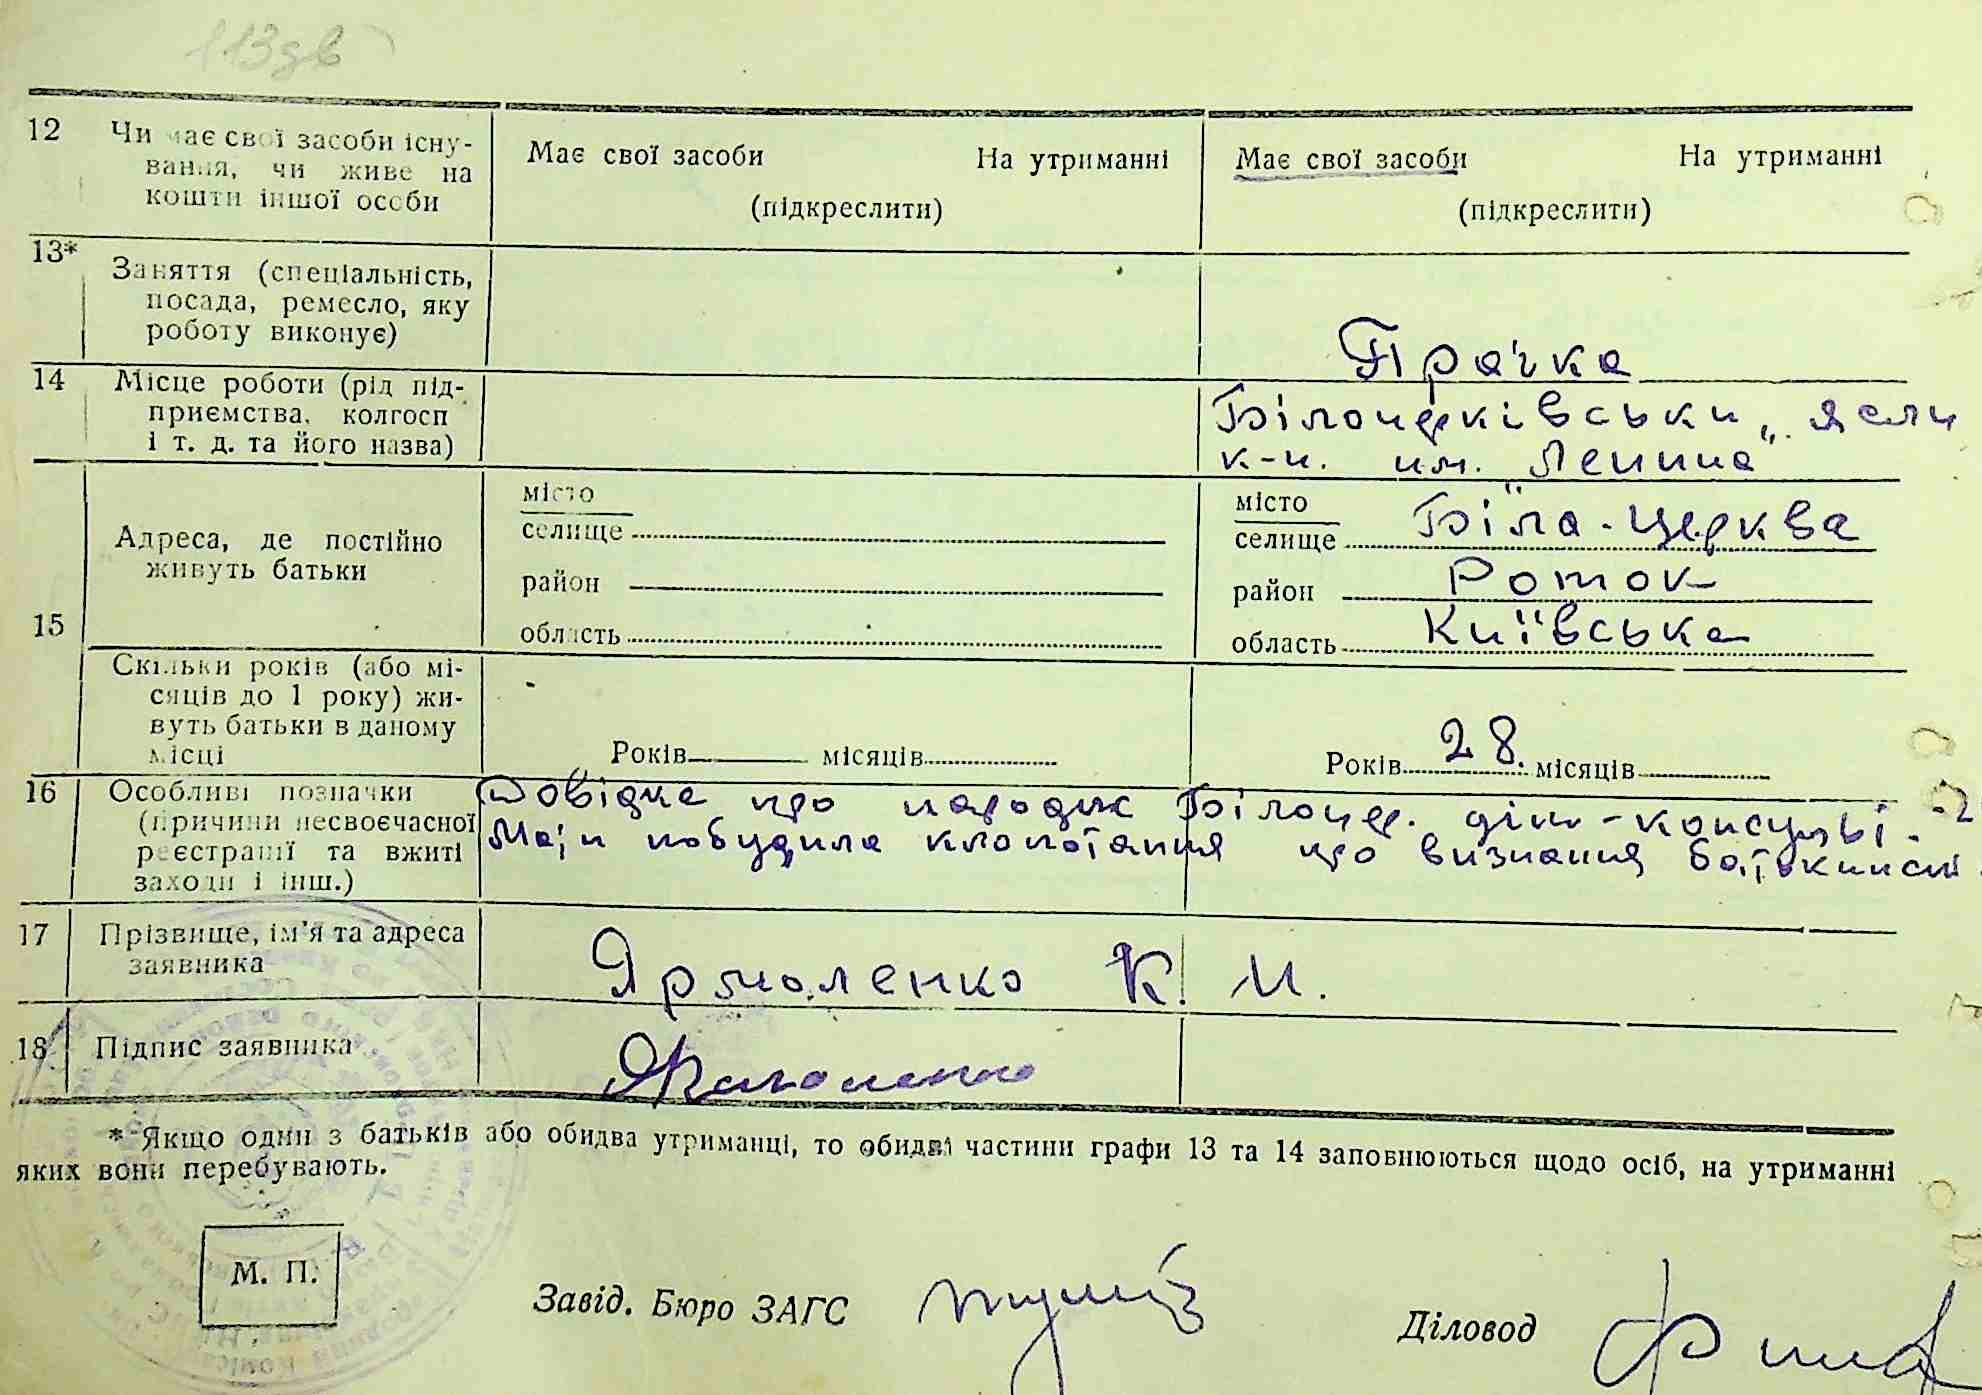 113зв
12 Чи має свої засоби існу- Має свої засоби На утриманні Має свої засоби На утриманні
вання, чи живе на
кошти іншої особи (підкреслити) (підкреслити)
13* Заняття (спеціальність,
посада, ремесло, яку
роботу виконує) Прачка
14 Місце роботи (рід під- Білоцерківськи „ясли
приємства, колгосп
і т. д. та його назва) к-и. им. Ленина"
місто місто
Адреса, де постійно селище селище Біла-Церква
живуть батьки район район Роток
15 область область Київська
Скільки років (або мі-
сяців до 1 року) жи-
вуть батьки в даному
місці Років місяців Років 28. місяців
16 Особливі позначки Довідка про народж Білоцер. діт-консульт. -2
(причини несвоєчасної Мати побудила клопотання про визнання батьківст.
реєстрації та вжиті
заходи і інш.)
17 Прізвище, ім'я та адреса Ярмоленко К. И.
заявника
18 Підпис заявника Ярмоленко
* Якщо один з батьків або обидва утриманці, то обидві частини графи 13 та 14 заповнюються щодо осіб, на утриманні
яких вони перебувають.
М. П. Завід. Бюро ЗАГС Діловод